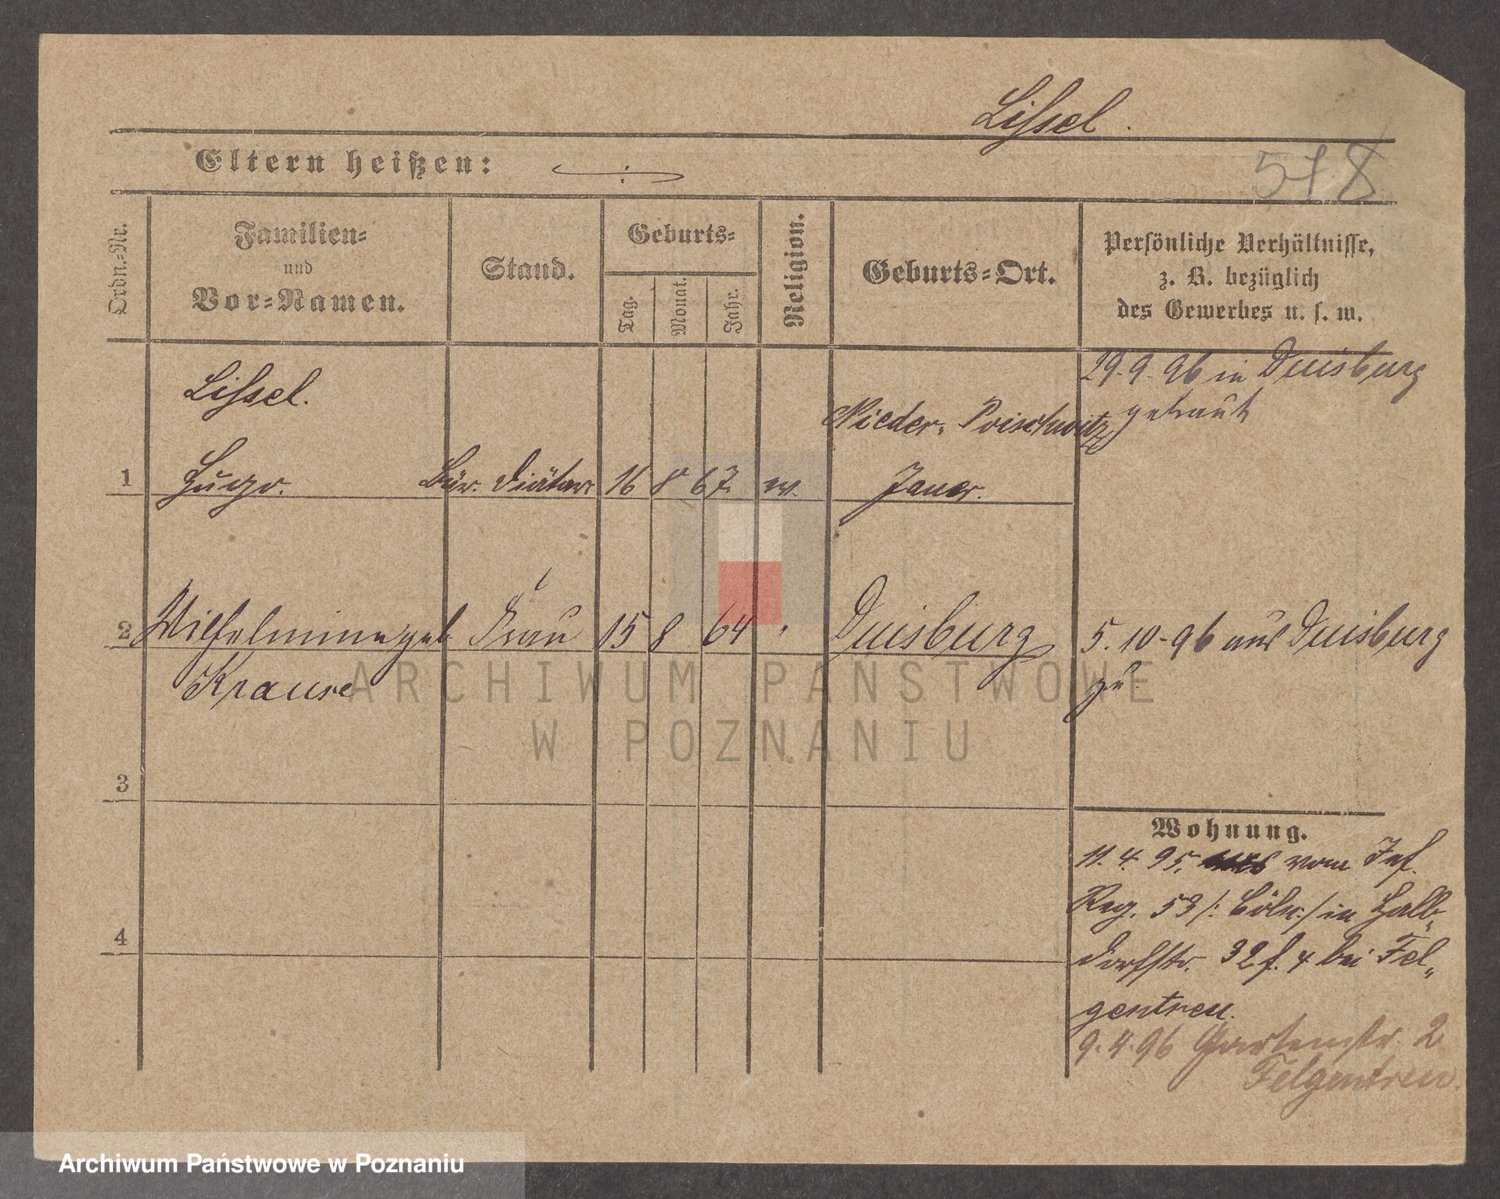 Lißel.
Eltern heißen:
578
Ordn.-Nr.
Familien-
und
Vor-Namen.
Stand.
Geburts-
Tag.
Monat.
Jahr.
Religion.
Geburts-Ort.
Persönliche Verhältnisse,
z. B. bezüglich
des Gewerbes u. s. w.
29.9.96 in Duisburg
getraut
Lißel.
Nieder. Poischwitz
1 Hugo. Bür. Diätar 16 8 67 ev. Jauer.
2 Wilhelmine geb Frau 15 8 64 " Duisburg
Krause
5.10.96 aus Duisburg
zu.
3
4
Wohnung.
11.4.95. vom Inf.
Reg. 53 /: Cöln :/ in Halb-
dorfstr. 32 f. 4 bei Fel-
gentreu.
9.4.96 Gartenstr. 2
Felgentreu.
ARCHIWUM PAŃSTWOWE
W POZNANIU
Archiwum Państwowe w Poznaniu